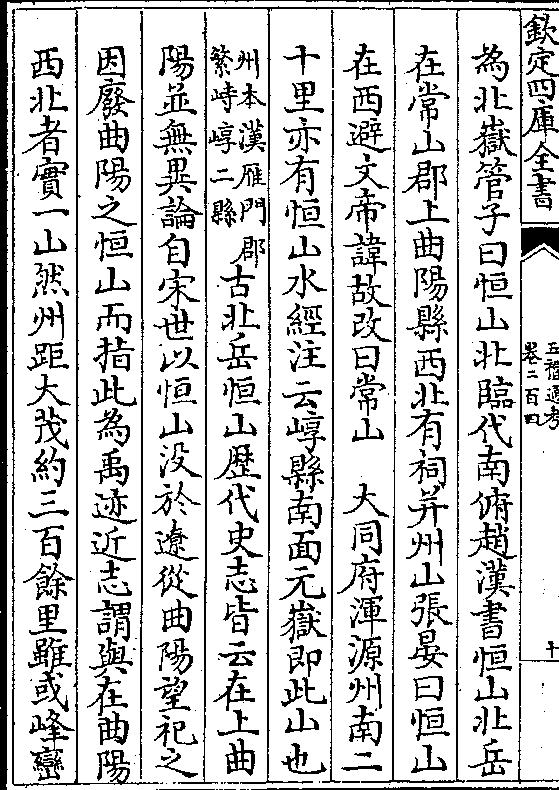 欽定四庫全書
五禮通考
卷二百四
十
為北嶽管子曰恒山北臨代南俯趙漢書恒山北岳
在常山郡上曲陽縣西北有祠并州山張晏曰恒山
在西避文帝諱故改曰常山 大同府渾源州南二
十里亦有恒山水經注云崞縣南面元嶽即此山也
州本漢雁門郡
繁峙崞二縣
古北岳恒山歷代史志皆云在上曲
陽並無異論自宋世以恒山没於遼從曲陽望祀之
因廢曲陽之恒山而指此為禹迹近志謂與在曲陽
西北者實一山然州距大茂約三百餘里雖或峰巒